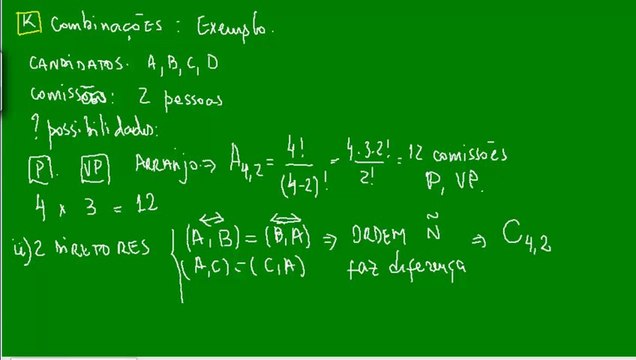 K Combinações: Exemplo.
CANDIDATOS: A, B, C, D
comissões: 2 pessoas
? possibilidades:
P. VP ARRANJO => A4,2 = 4!/(4-2)! = 4.3.2!/2! = 12 comissões P, VP.
4 x 3 = 12
ii) 2 DIRETORES (A, B) = (B, A) => ORDEM Ñ faz diferença => C4,2
(A,C) = (C,A)